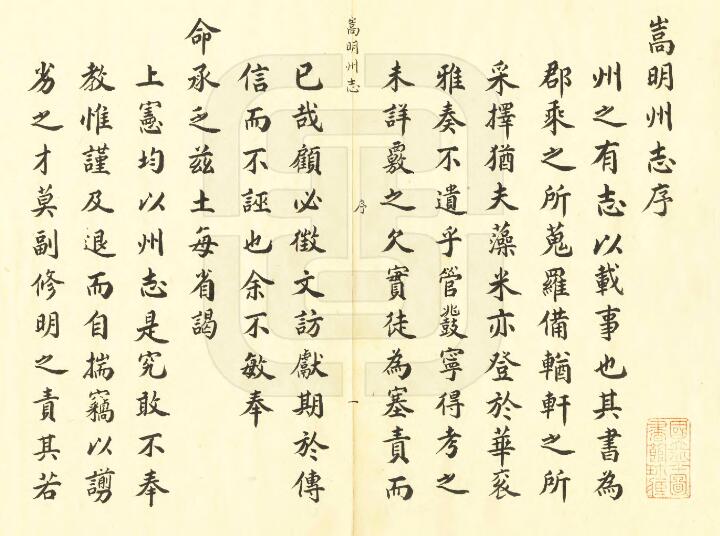 嵩明州志序
州之有志以載事也其書為
郡乘之所蒐羅備輶軒之所
采擇猶夫藻米亦登於華衮
雅奏不遺乎管鼗寧得考之
未詳覈之欠實徒為塞責而
嵩明州志
序
一
已哉顧必徵文訪獻期於傳
信而不誣也余不敏奉
命承乏茲土每省謁
上憲均以州志是究敢不奉
教惟謹及退而自揣竊以謭
劣之才莫副修明之責其若